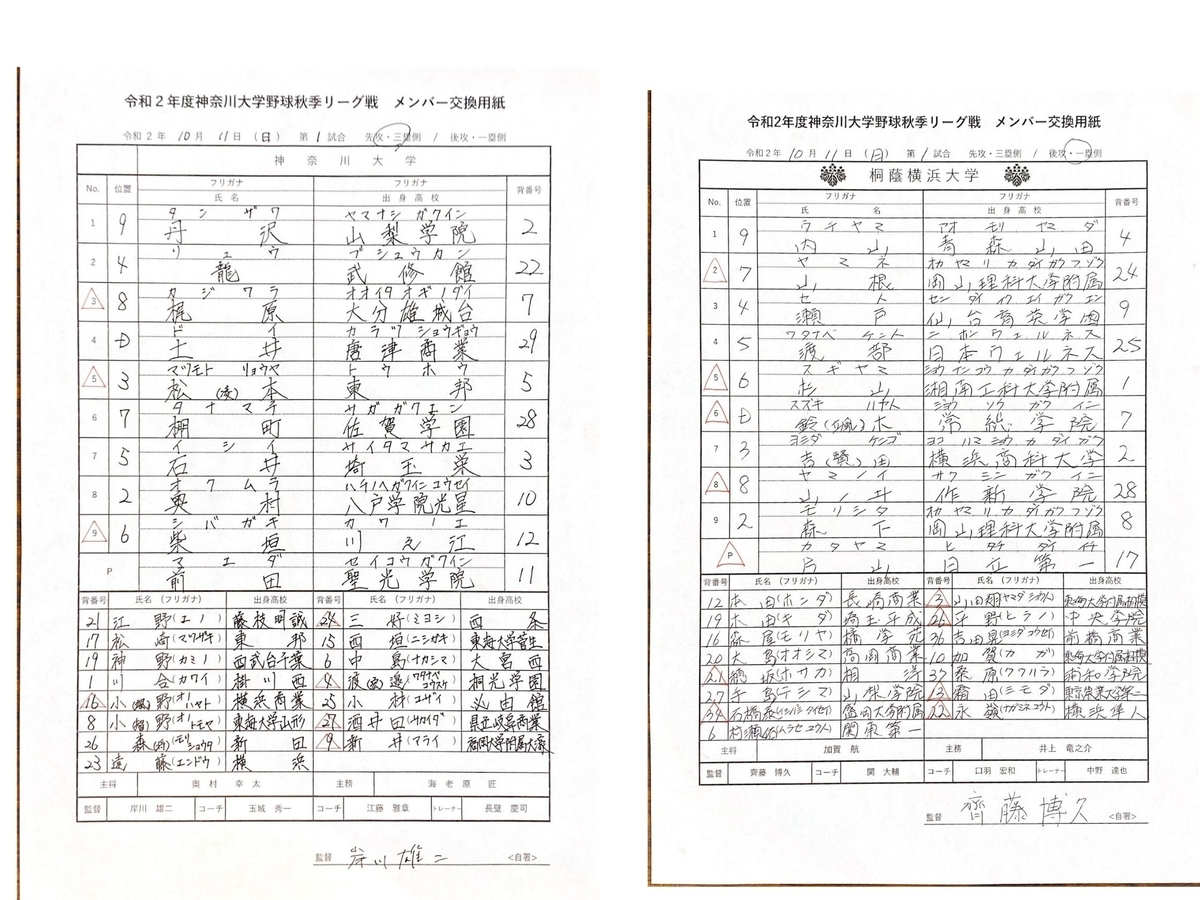 令和2年度神奈川大学野球秋季リーグ戦 メンバー交換用紙
令和2年 10月 11日 (日) 第1試合 先攻・三塁側 / 後攻・一塁側
神奈川大学
No. 位置 フリガナ 氏名 フリガナ 出身高校 背番号
タンザワ ヤマナシガクイン
1 9 丹沢 山梨学院 2
リュウ ブシュウカン
2 4 龍 武修館 22
カジワラ オオイタオギノダイ
3 8 梶原 大分雄城台 7
ドイ カラツショウギョウ
4 D 土井 唐津商業 29
マツモト リョウヤ トウホウ
5 3 松(凌)本 東邦 5
タナマチ サガガクエン
6 7 棚町 佐賀学園 28
イシイ サイタマサカエ
7 5 石井 埼玉栄 3
オクムラ ハチノヘガクインコウセイ
8 2 奥村 八戸学院光星 10
シバガキ カワノエ
9 6 柴垣 川之江 12
マエダ セイコウガクイン
P 前田 聖光学院 11
背番号 氏名(フリガナ) 出身高校 背番号 氏名(フリガナ) 出身高校
21 江野(エノ) 藤枝明誠 24 三好(ミヨシ) 西条
17 松崎(マツザキ) 東邦 15 西垣(ニシガキ) 東海大学菅生
19 神野(カミノ) 西武台千葉 6 中島(ナカシマ) 大宮西
1 川合(カワイ) 掛川西 渡邉(ワタナベ コウスケ) 桐光学園
16 小野(オノ ハヤト) 横浜商業 25 小材(コザイ) 必由館
8 小野(オノ トモヤ) 東海大学山形 27 酒井田(サカイダ) 県立岐阜商業
26 森(モリ ショウタ) 新田 新井(アライ) 福岡大学附属大濠
23 遠藤(エンドウ) 横浜
主将 奥村 幸太 主務 海老原 匠
監督 岸川 雄二 コーチ 玉城 秀一 コーチ 江藤 雅章 トレーナー 長壁 慶司
監督 岸川雄二 <自署>
令和2年度神奈川大学野球秋季リーグ戦 メンバー交換用紙
令和2年 10月 11日 (日) 第1試合 先攻・三塁側 / 後攻・一塁側
桐蔭横浜大学
No. 位置 フリガナ 氏名 フリガナ 出身高校 背番号
ウチヤマ アオモリヤマダ
1 9 内山 青森山田 4
ヤマネ オカヤマリカダイガクフゾク
2 7 山根 岡山理科大学附属 24
セト センダイイクエイガクエン
3 4 瀬戸 仙台育英学園 9
ワタナベ ケント ニホンウェルネス
4 5 渡部 日本ウェルネス 25
スギヤマ ショウナンコウカダイガクフゾク
5 6 杉山 湘南工科大学附属 1
スズキ ハヤト ジョウソウガクイン
6 D 鈴(颯)木 常総学院 7
ヨシダ ケンゴ ヨコハマショウカダイガク
7 3 吉(賢)田 横浜商科大学 2
ヤマノイ サクシンガクイン
8 8 山ノ井 作新学院 28
モリシタ オカヤマリカダイガクフゾク
9 2 森下 岡山理科大学附属 8
カタヤマ ヒタチダイイチ
P 片山 日立第一 17
背番号 氏名(フリガナ) 出身高校 背番号 氏名(フリガナ) 出身高校
12 本田(ホンダ) 長崎商業 3 山田翔(ヤマダショウ) 東海大学付属相模
19 木田(キダ) 埼玉平成 平野(ヒラノ) 中央学院
16 森屋(モリヤ) 橘学苑 36 吉田晃(ヨシダコウセイ) 前橋商業
20 大島(オオシマ) 高岡商業 10 加賀(カガ) 東海大学付属相模
21 穂坂(ホサカ) 相洋 37 桑原(クワハラ) 浦和学院
27 手島(テシマ) 山梨学院 東京農業大学第二
34 石橋 盛岡大学附属 22 永嶺(ナガミネユウト) 横浜隼人
6 村瀬佑(ムラセユウト) 関東第一
主将 加賀 航 主務 井上 竜之介
監督 齊藤 博久 コーチ 関 大輔 コーチ 口羽 宏和 トレーナー 中野 達也
監督 齊藤博久 <自署>